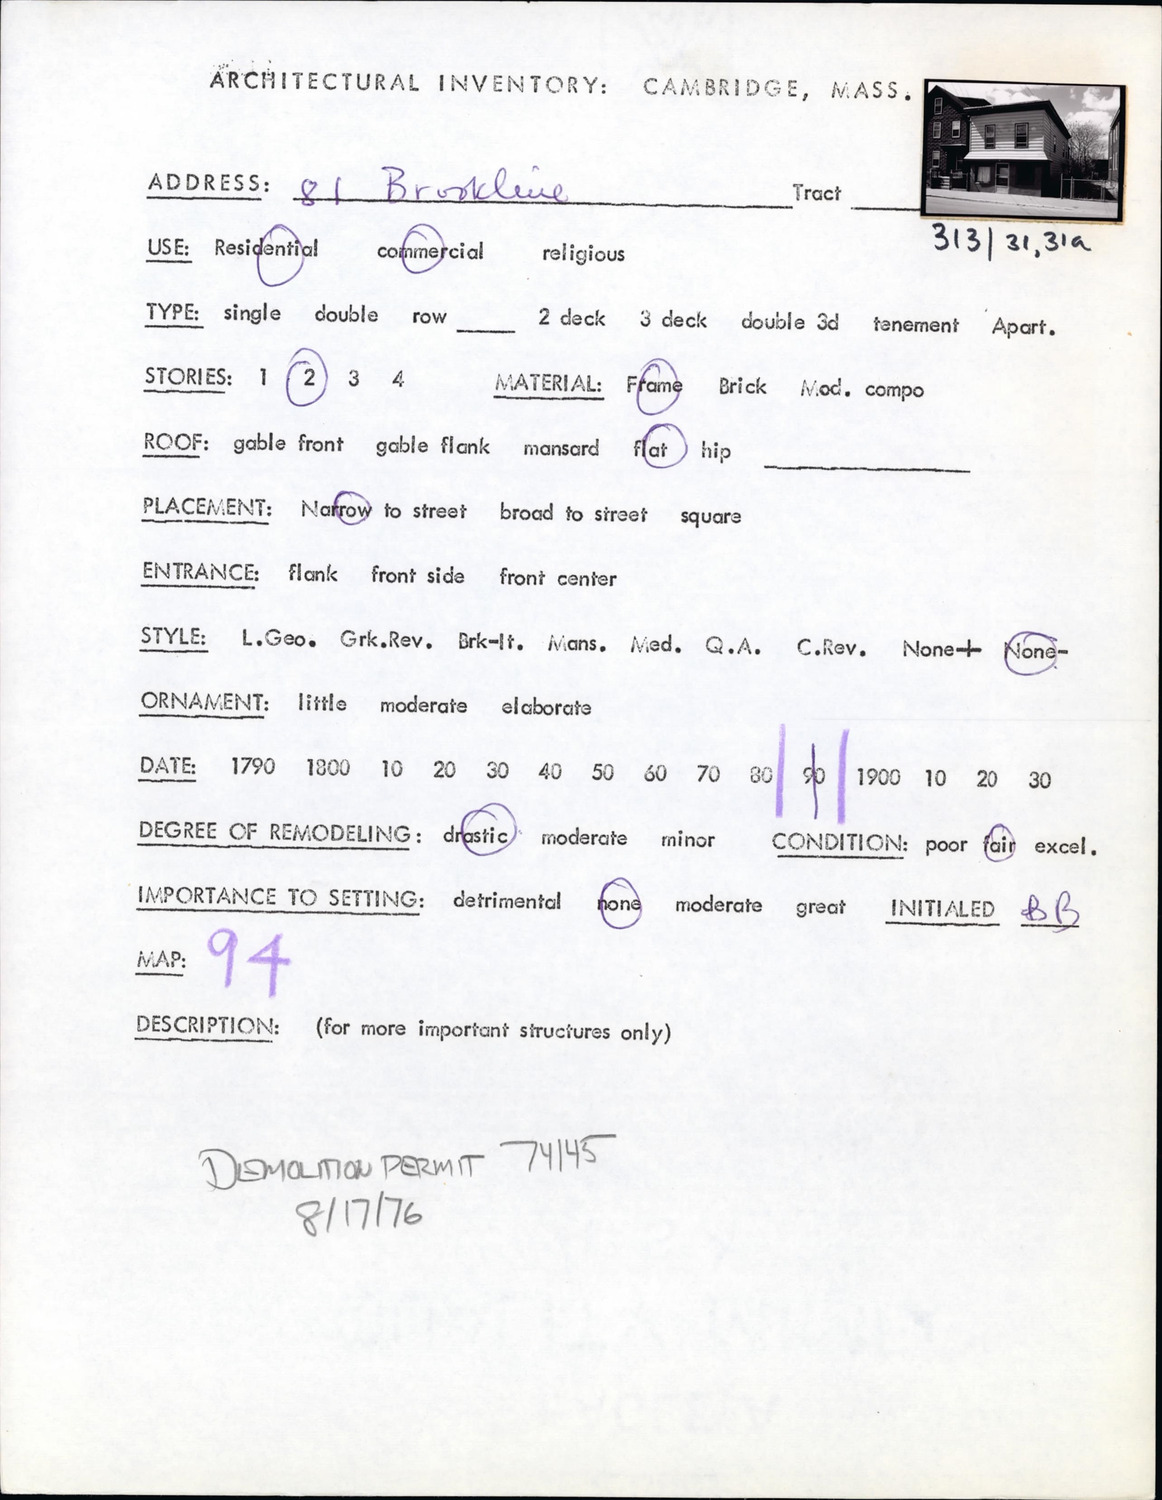 ARCHITECTURAL INVENTORY: CAMBRIDGE, MASS.
ADDRESS: 81 Brookline Tract
313/31,31a
USE: Residential commercial religious
TYPE: single double row 2 deck 3 deck double 3d tenement Apart.
STORIES: 1 2 3 4 MATERIAL: Frame Brick Mod. compo
ROOF: gable front gable flank mansard flat hip
PLACEMENT: Narrow to street broad to street square
ENTRANCE: flank front side front center
STYLE: L.Geo. Grk.Rev. Brk-It. Mans. Med. Q.A. C.Rev. None+ None-
ORNAMENT: little moderate elaborate
DATE: 1790 1800 10 20 30 40 50 60 70 80 90 1900 10 20 30
DEGREE OF REMODELING: drastic moderate minor CONDITION: poor fair excel.
IMPORTANCE TO SETTING: detrimental none moderate great INITIALED BB
MAP: 94
DESCRIPTION: (for more important structures only)
DEMOLITION PERMIT 74145
8/17/76